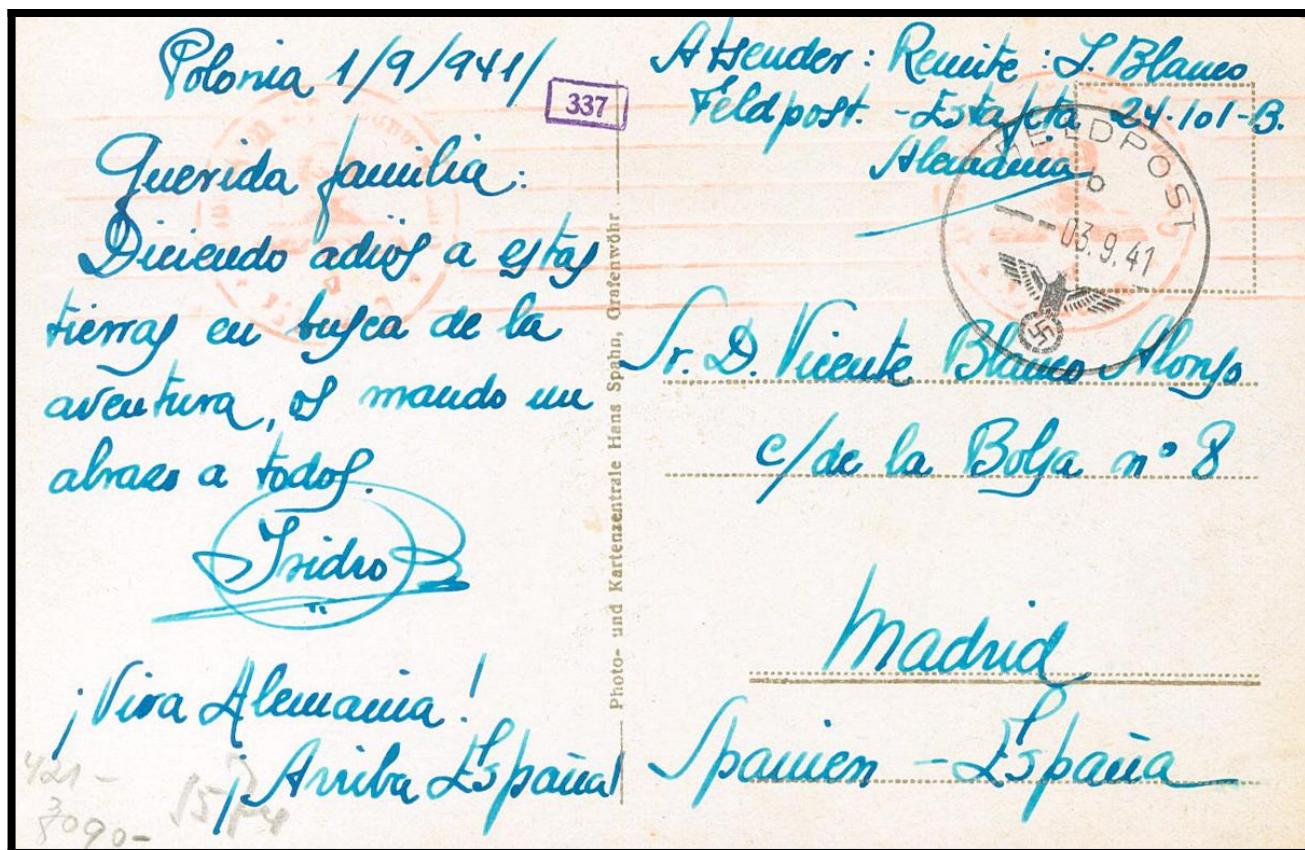 Polonia 1/9/941/
337
Querida familia:
Diciendo adios a estas
tierras en busca de la
aventura, os mando un
abrazo a todos.
Isidro B
¡Viva Alemania!
¡Arriba España!
421-
8090-
Photo- und Kartenzentrale Hans Spahn, Grafenwöhr
Absender: Remite: I. Blanco
Feldpost. -Estafeta 24.101-B.
Alemania
FELDPOST
b
-03.9.41
Sr. D. Vicente Blanco Alonso
c/ de la Bolsa nº 8
Madrid
Spanien - España